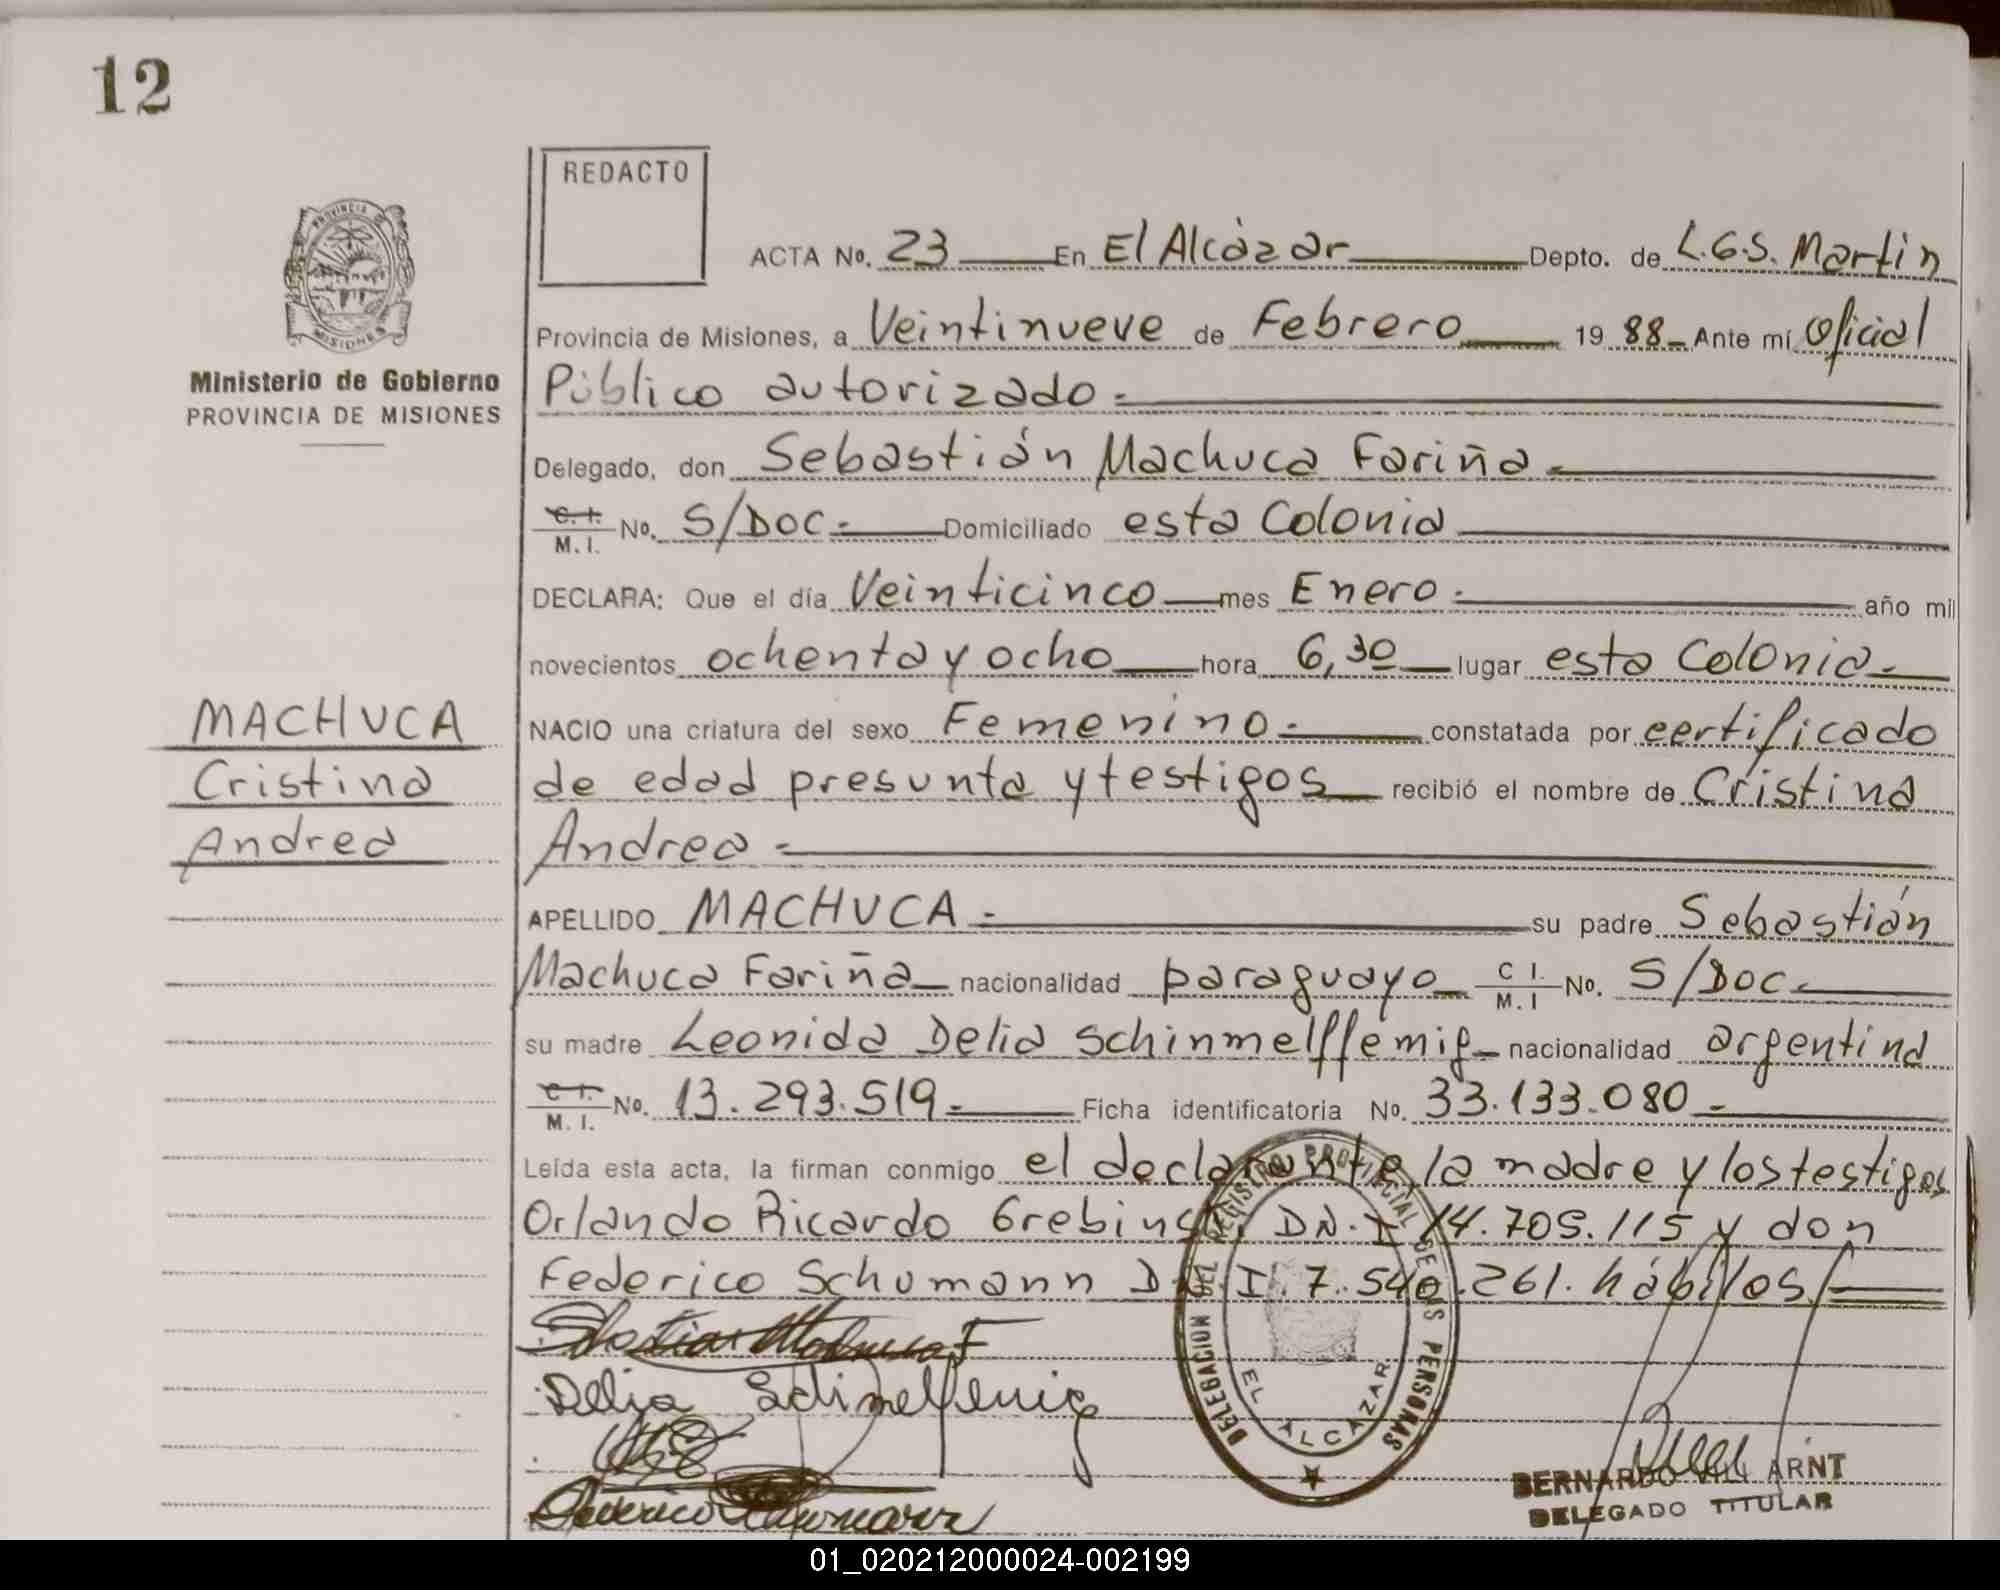 12
REDACTO
PROVINCIA DE
MISIONES
Ministerio de Gobierno
PROVINCIA DE MISIONES
ACTA No. 23 En El Alcàzar Depto. de L.G.S. Martin
Provincia de Misiones, a Veintinueve de Febrero 19 88 Ante mí Oficial
Público autorizado.
Delegado, don Sebastián Machuca Fariña.
C. I. M. I. No. S/DOC. Domiciliado esta Colonia
DECLARA: Que el día Veinticinco mes Enero. año mil
novecientos ochenta y ocho hora 6,30 lugar esta Colonia.
MACHUCA
Cristina
Andrea
NACIO una criatura del sexo Femenino. constatada por certificado
de edad presunta y testigos recibió el nombre de Cristina
Andrea.
APELLIDO MACHUCA. su padre Sebastián
Machuca Fariña nacionalidad paraguayo C I. M. I No. S/DOC.
su madre Leonida Delia Schinmelffemig nacionalidad argentina
C I. M. I. No. 13.293.519. Ficha identificatoria No. 33.133.080.
Leída esta acta, la firman conmigo el declarante, la madre y los testigos
Orlando Ricardo Grebinski DN.I 14.705.115 y don
Federico Schumann DN.I. 7.540.261. hábiles/
Sebastian Machuca F
Delia Schimelfenig
Federico Schumann
DELEGACION DEL REGISTRO PROVINCIAL DE LAS PERSONAS
EL ALCAZAR
BERNARDO ARNT
DELEGADO TITULAR
01_020212000024-002199